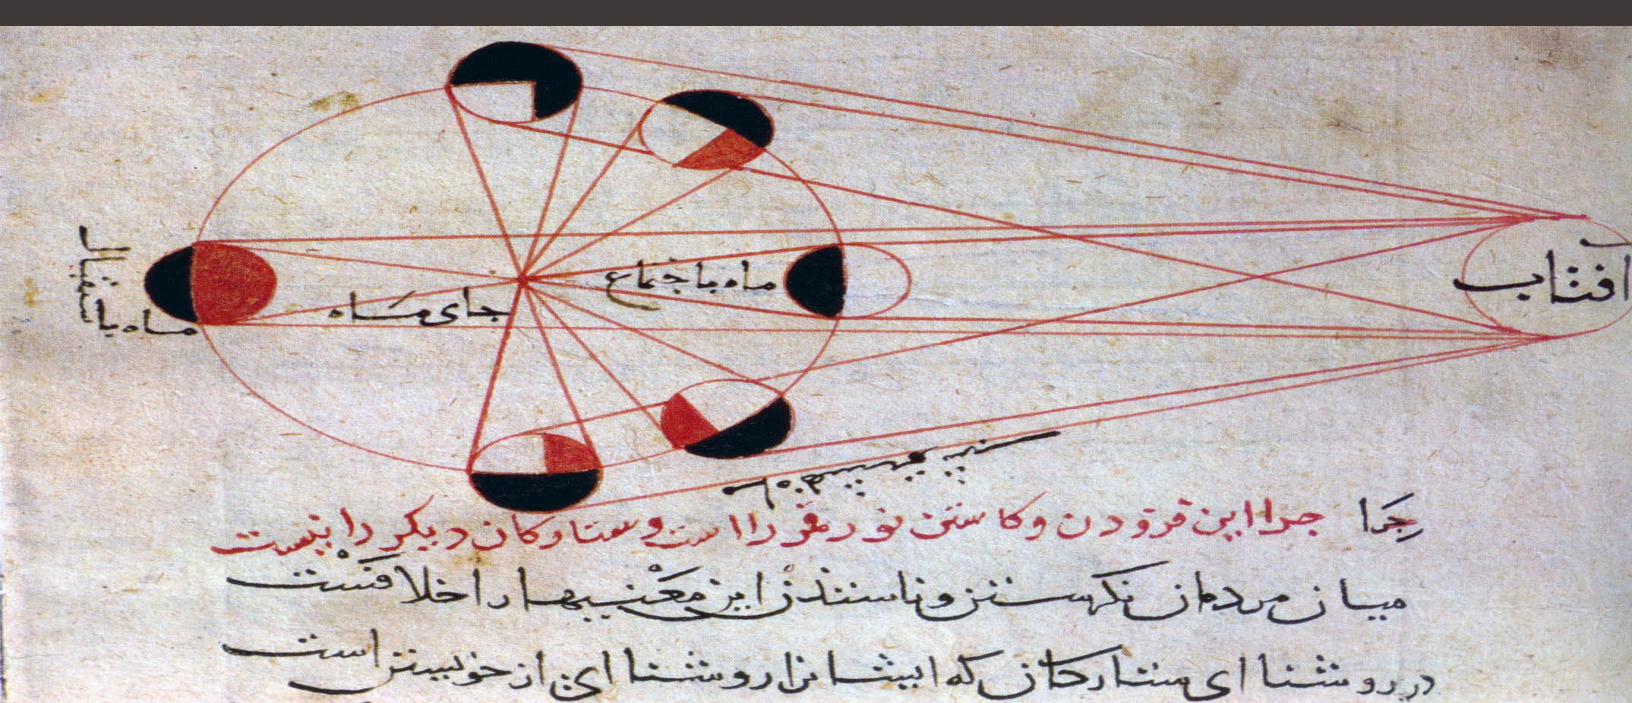 آفتاب
ماه باجتماع
جای ماه
ماه باستقبال
چرا این فزودن وکاستن نور مر قمر را است وستارکان دیکر را نیست
میان مردمان نکرستن ازین معنیها را خلافست
در روشنا ای ستارکان که ایشانرا روشنا ای از خویشتن است